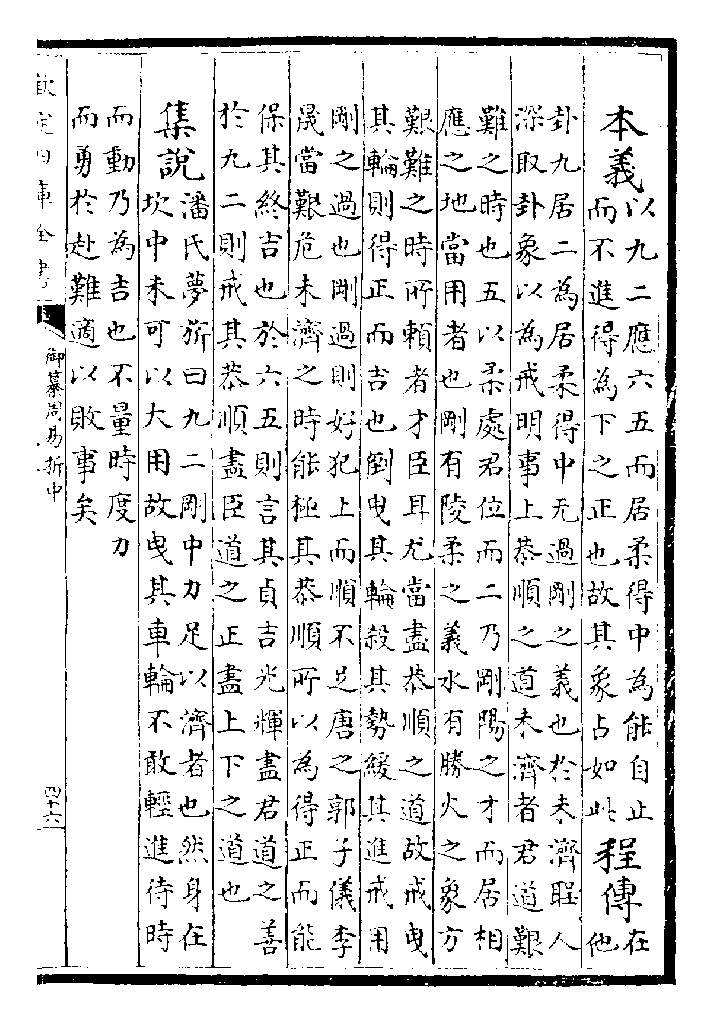 本義以九二應六五而居柔得中為能自止
而不進得為下之正也故其象占如此
程傳在
他
卦九居二為居柔得中无過剛之義也於未濟聖人
深取卦象以為戒明事上恭順之道未濟者君道艱
難之時也五以柔處君位而二乃剛陽之才而居相
應之地當用者也剛有陵柔之義水有勝火之象方
艱難之時所賴者才臣耳尤當盡恭順之道故戒曳
其輪則得正而吉也倒曳其輪殺其勢緩其進戒用
剛之過也剛過則好犯上而順不足唐之郭子儀李
晟當艱危未濟之時能極其恭順所以為得正而能
保其終吉也於六五則言其貞吉光輝盡君道之善
於九二則戒其恭順盡臣道之正盡上下之道也
集說潘氏夢旂曰九二剛中力足以濟者也然身在
坎中未可以大用故曳其車輪不敢輕進待時
而動乃為吉也不量時度力
而勇於赴難適以敗事矣
欽定四庫全書
御纂周易折中
四十六